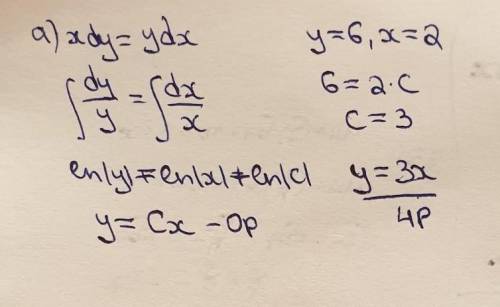 a) xdy = ydx
∫ dy/y = ∫ dx/x
ln|y| = ln|x| + ln|c|
y = Cx - Op
y = 6, x = 2
6 = 2·C
C = 3
y = 3x
4P